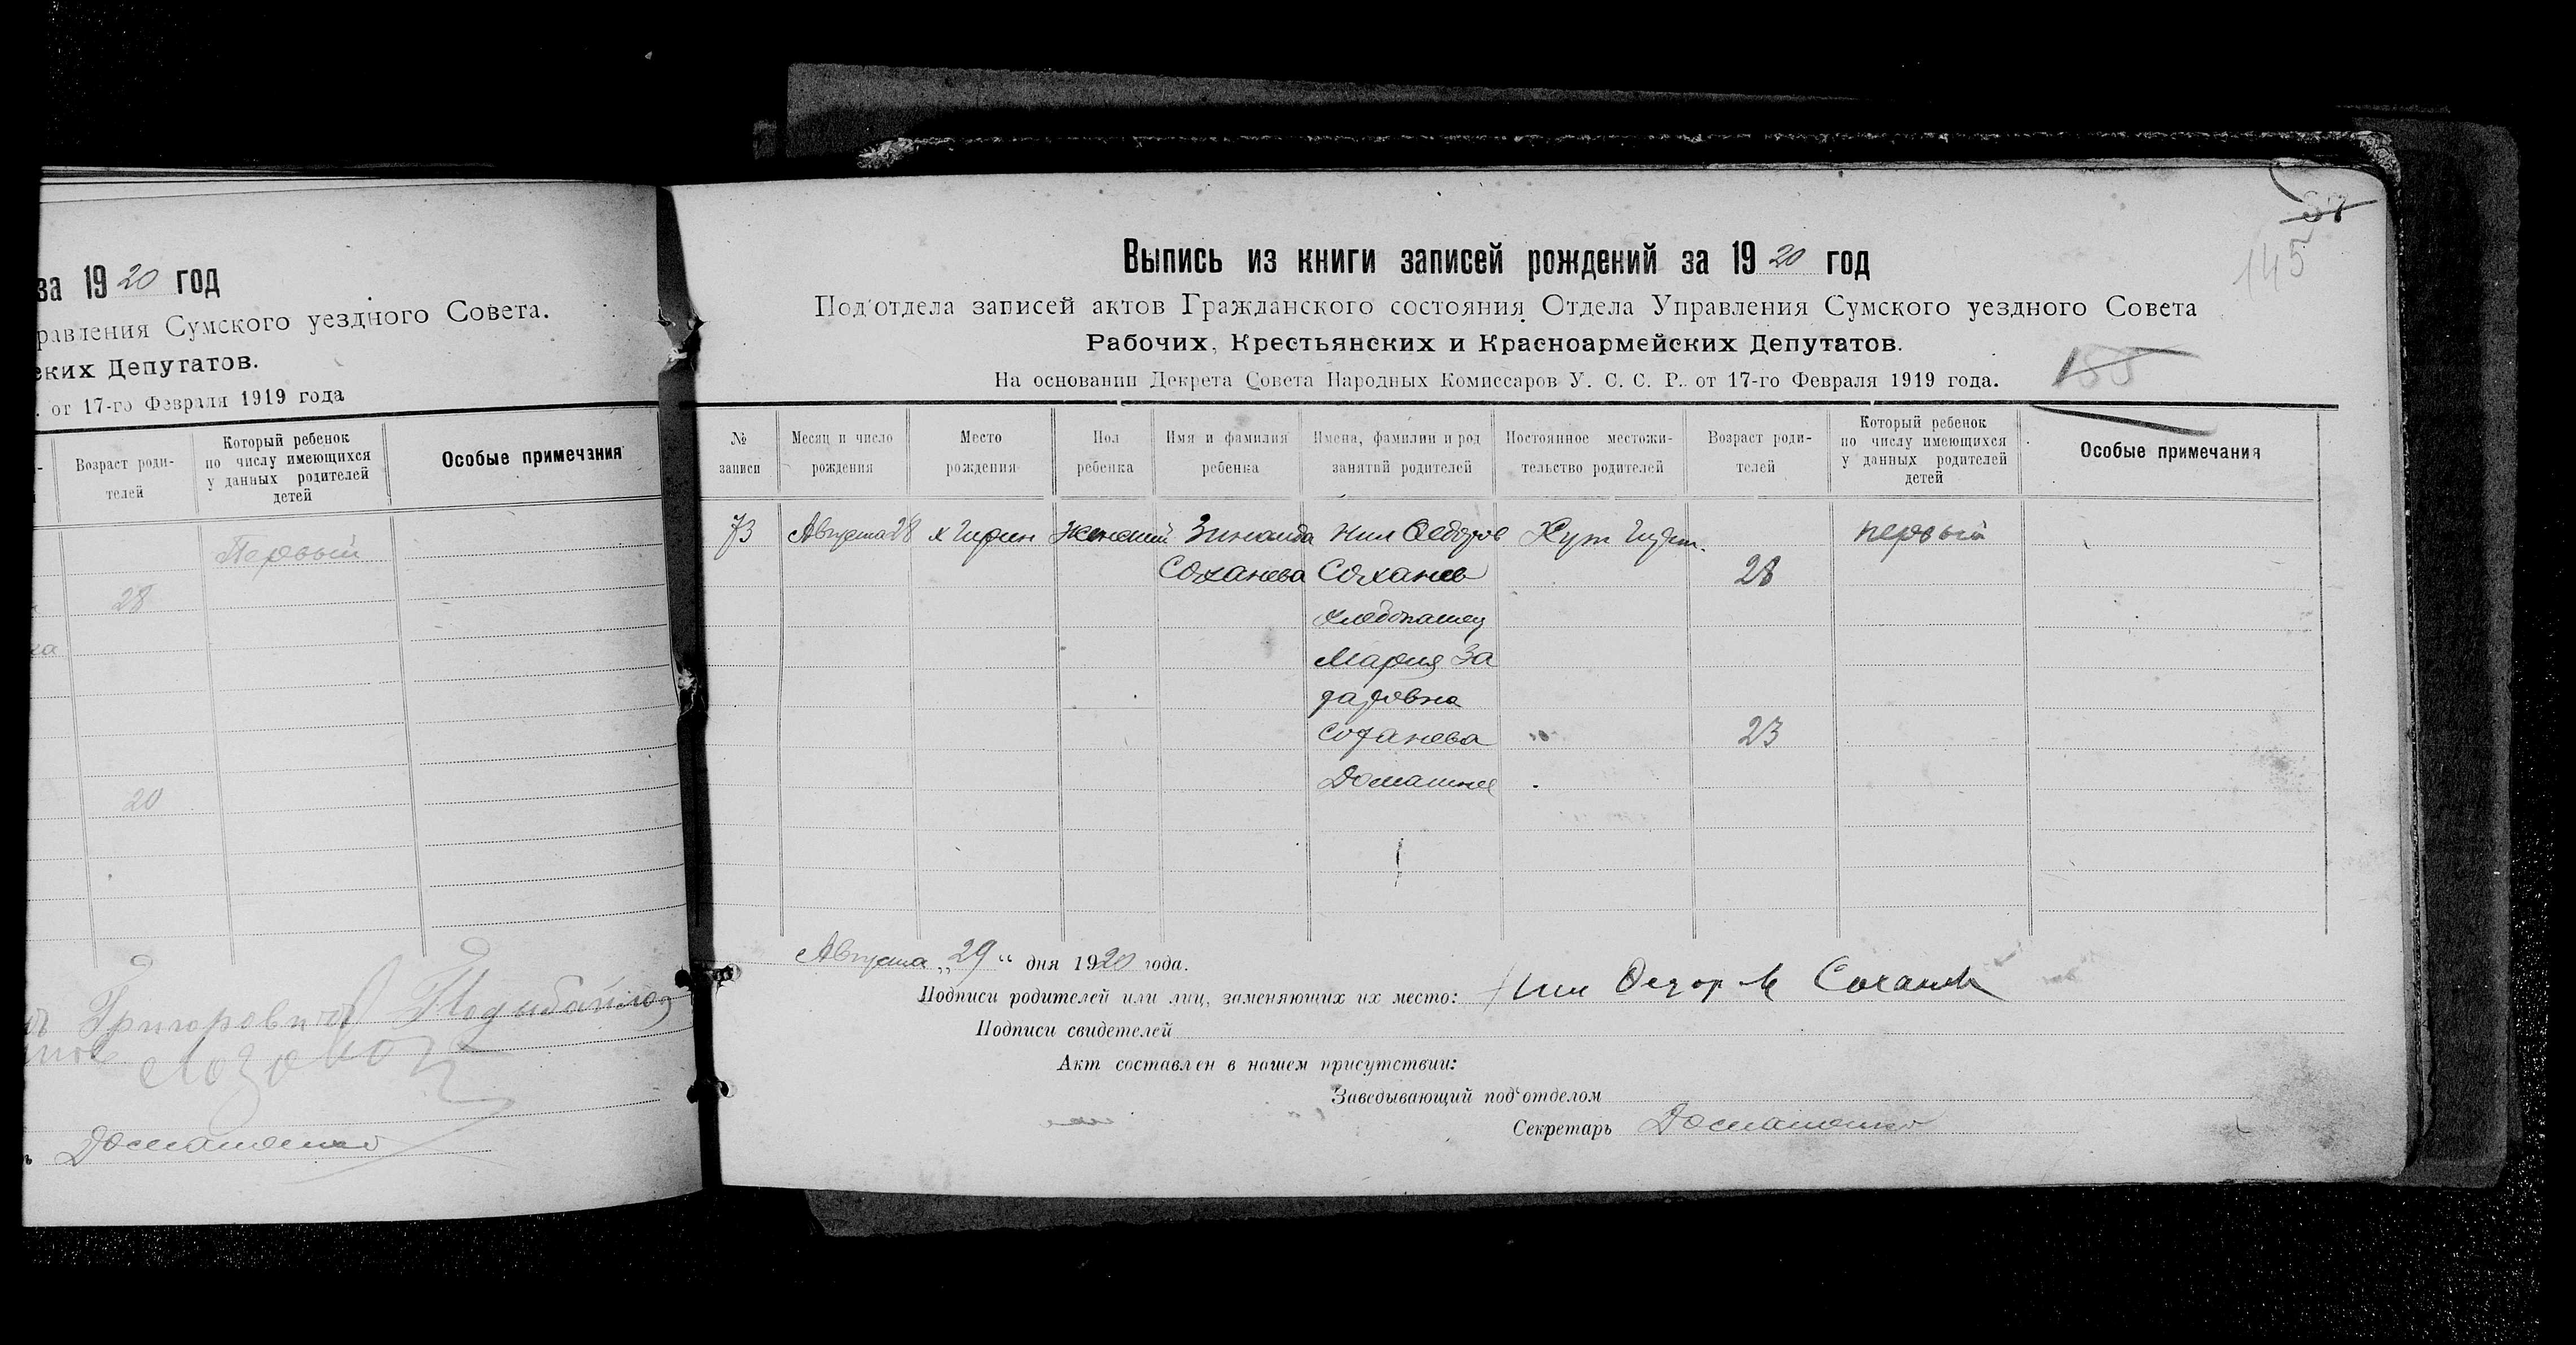 за 1920 год
равления Сумского уездного Совета.
ских Депутатов.
. от 17-го Февраля 1919 года
Возраст роди-
телей
Который ребенок
по числу имеющихся
у данных родителей
детей
Особые примечания
Первый
28
ка
20
Григорович
Домашенко
145
Выпись из книги записей рождений за 1920 год
Под'отдела записей актов Гражданского состояния Отдела Управления Сумского уездного Совета
Рабочих, Крестьянских и Красноармейских Депутатов.
На основании Декрета Совета Народных Комиссаров У. С. С. Р. от 17-го Февраля 1919 года.
№
записи
Месяц и число
рождения
Место
рождения
Пол
ребенка
Имя и фамилия
ребенка
Имена, фамилии и род
занятий родителей
Постоянное местожи-
тельство родителей
Возраст роди-
телей
Который ребенок
по числу имеющихся
у данных родителей
детей
Особые примечания
73 Августа 28 женский Зинаида Нил Федоров Хут первый
Соханева Соханев 28
хлебопашец
Мария За
харовна
Соханева " 23
Домашнее
Августа „29“ дня 1920 года.
Подписи родителей или лиц, заменяющих их место: Нил Федоров Соханев
Подписи свидетелей
Акт составлен в нашем присутствии:
Заведывающий под'отделом
Секретарь Домашенко